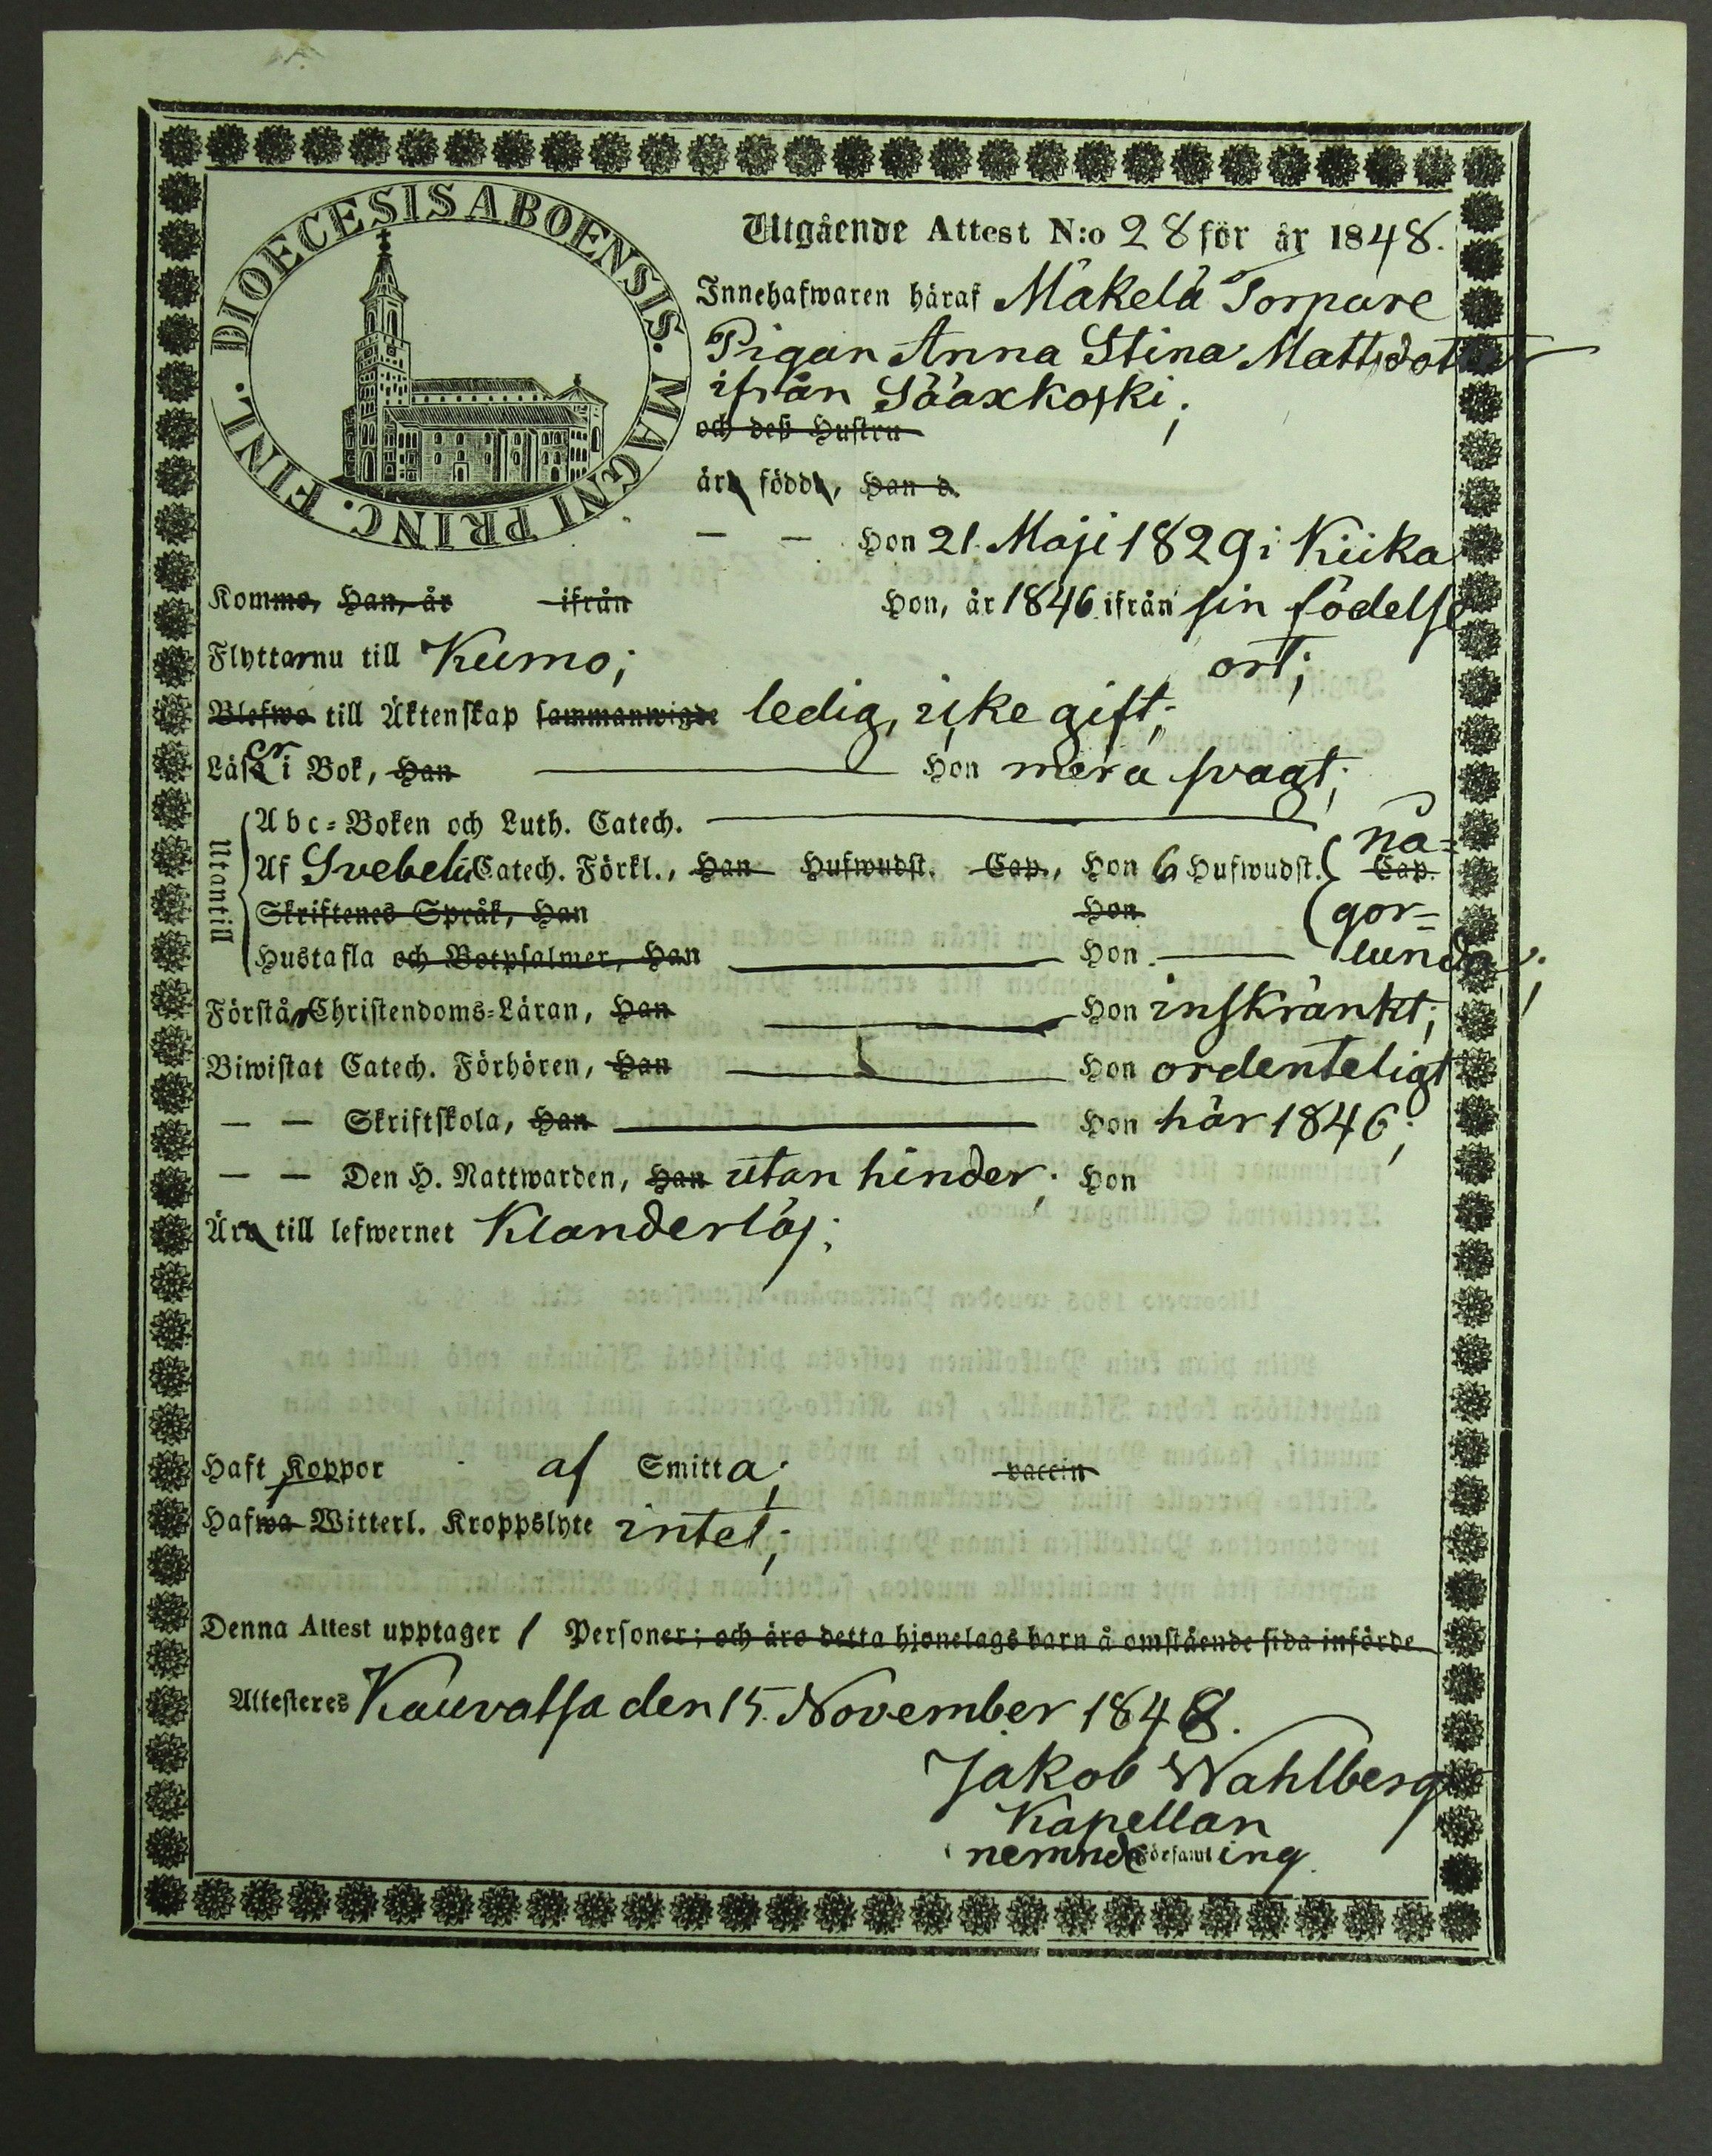 DIOECESIS ABOENSIS. MAGNI PRINC. FINL.
Utgående Attest N:o 28 för år 1848.
Innehafwaren häraf Mäkelä Torpare
Pigan Anna Stina Mattsdotter
ifrån Sääxkoski;
och deß Hustru
äro födde, Han d.
— — Hon 21. Maji 1829 i Kiika
Kommo, Han, år ifrån Hon, år 1846 ifrån sin födelse
ort;
Flytta nu till Kumo;
Blefwo till Äktenskap sammanwigde ledig, icke gift;
Läser i Bok, Han Hon mera svagt;
Utantill
Abc-Boken och Luth. Catech.
Af Svebelii Catech. Förkl., Han Hufwudst. Cap., Hon 6 Hufwudst. Cap. nå=
Skriftenes Språk, Han Hon gor=
Hustafla och Botpsalmer, Han Hon lunda;
Förstår Christendoms-Läran, Han Hon inskränkt;
Biwistat Catech. Förhören, Han Hon ordenteligt
— — Skriftskola, Han Hon här 1846;
— — Den H. Nattwarden, Han utan hinder; Hon
Äro till lefwernet Klanderlös;
Haft Koppor af Smitta; vaccin
Hafwa Witterl. Kroppslyte intet;
Denna Attest upptager 1 Personer; och äro detta hjonelags barn å omstående sida införde
Attesteres Kauvatsa den 15. November 1848.
Jakob Wahlberg
Kapellan
nemnde Församling.